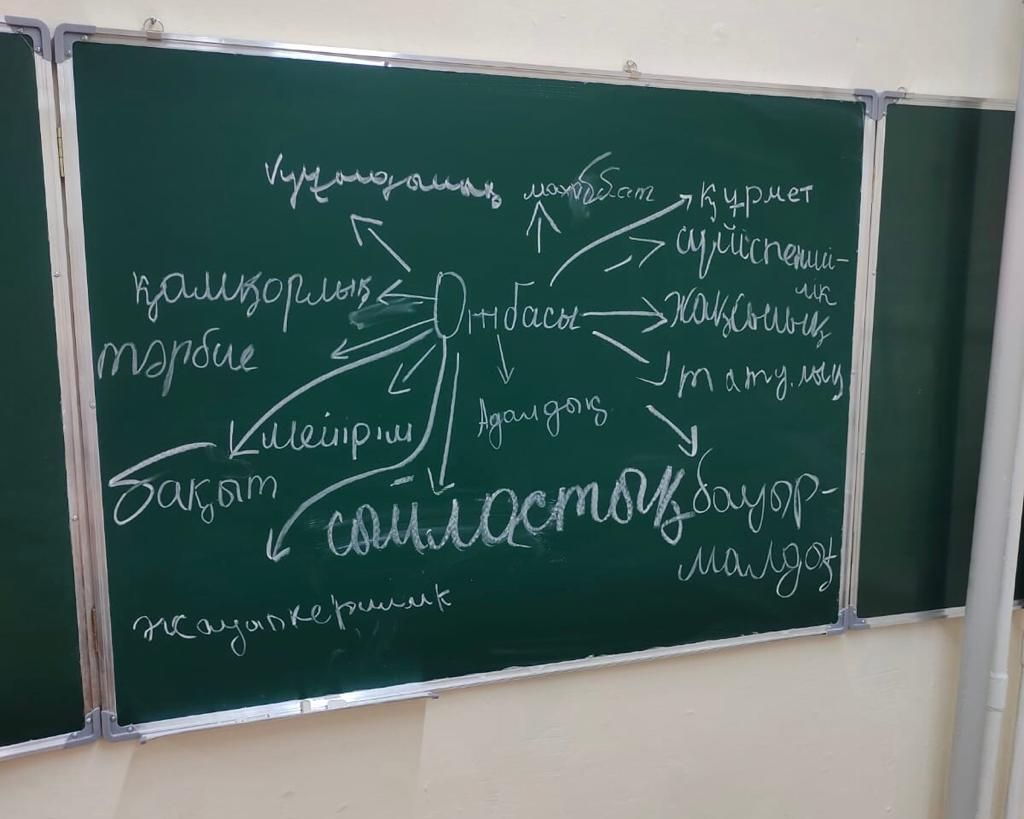 махаббат
құрмет
сүйіспенші-
лік
қамқорлық
Отбасы
жақсылық
тәрбие
татулық
Адалдық
мейірім
бақыт
сыйластық
бауыр-
малдық
жауапкершілік